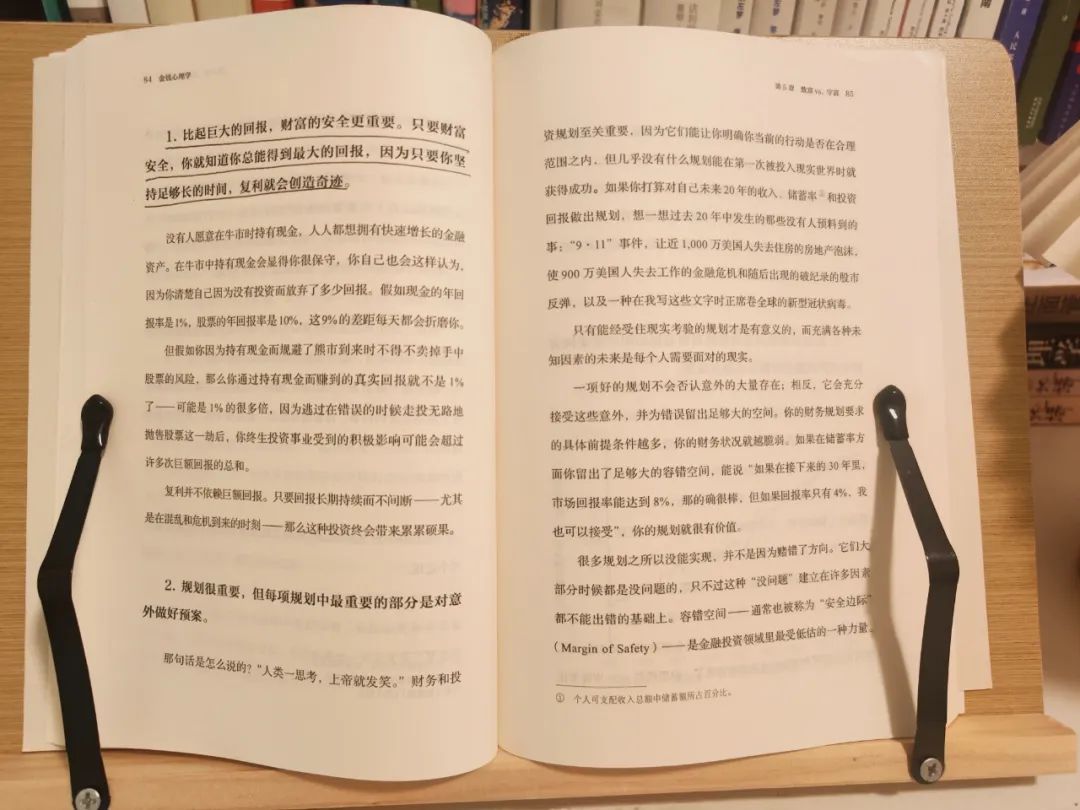 84 金钱心理学
1. 比起巨大的回报，财富的安全更重要。只要财富
安全，你就知道你总能得到最大的回报，因为只要你坚
持足够长的时间，复利就会创造奇迹。
没有人愿意在牛市时持有现金，人人都想拥有快速增长的金融
资产。在牛市中持有现金会显得你很保守，你自己也会这样认为，
因为你清楚自己因为没有投资而放弃了多少回报。假如现金的年回
报率是1%，股票的年回报率是10%，这9%的差距每天都会折磨你。
但假如你因为持有现金而规避了熊市到来时不得不卖掉手中
股票的风险，那么你通过持有现金而赚到的真实回报就不是1%
了——可能是1%的很多倍，因为逃过在错误的时候走投无路地
抛售股票这一劫后，你终生投资事业受到的积极影响可能会超过
许多次巨额回报的总和。
复利并不依赖巨额回报。只要回报长期持续而不间断——尤其
是在混乱和危机到来的时刻——那么这种投资终会带来累累硕果。
2. 规划很重要，但每项规划中最重要的部分是对意
外做好预案。
那句话是怎么说的？“人类一思考，上帝就发笑。”财务和投
第5章 致富vs. 守富 85
资规划至关重要，因为它们能让你明确你当前的行动是否在合理
范围之内，但几乎没有什么规划能在第一次被投入现实世界时就
获得成功。如果你打算对自己未来20年的收入、储蓄率①和投资
回报做出规划，想一想过去20年中发生的那些没有人预料到的
事：“9·11”事件，让近1,000万美国人失去住房的房地产泡沫，
使900万美国人失去工作的金融危机和随后出现的破纪录的股市
反弹，以及一种在我写这些文字时正席卷全球的新型冠状病毒。
只有能经受住现实考验的规划才是有意义的，而充满各种未
知因素的未来是每个人需要面对的现实。
一项好的规划不会否认意外的大量存在；相反，它会充分
接受这些意外，并为错误留出足够大的空间。你的财务规划要求
的具体前提条件越多，你的财务状况就越脆弱。如果在储蓄率方
面你留出了足够大的容错空间，能说“如果在接下来的30年里，
市场回报率能达到8%，那的确很棒，但如果回报率只有4%，我
也可以接受”，你的规划就很有价值。
很多规划之所以没能实现，并不是因为赌错了方向。它们大
部分时候都是没问题的，只不过这种“没问题”建立在许多因素
都不能出错的基础上。容错空间——通常也被称为“安全边际”
（Margin of Safety）——是金融投资领域里最受低估的一种力量。
① 个人可支配收入总额中储蓄额所占百分比。